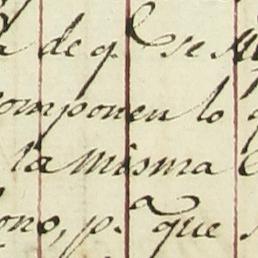 de q.e se
componen lo
la misma
ono, p.a que